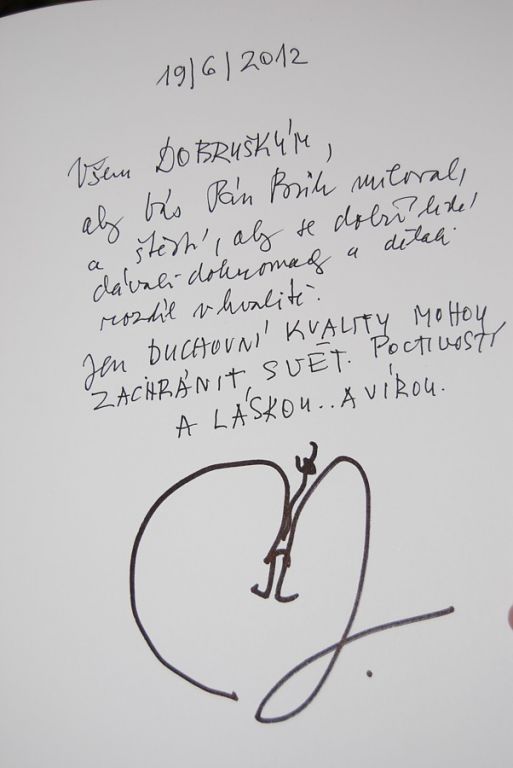 19/6/2012
Všem DOBRUŠKÝM,
aby Vás Pán Bůh miloval,
a štěstí, aby se dobří lidé
dávali dohromady a dělali
rozdíl v kvalitě.
Jen DUCHOVNÍ KVALITY MOHOU
ZACHRÁNIT SVĚT. POCTIVOSTÍ
A LÁSKOU.. A VÍROU.